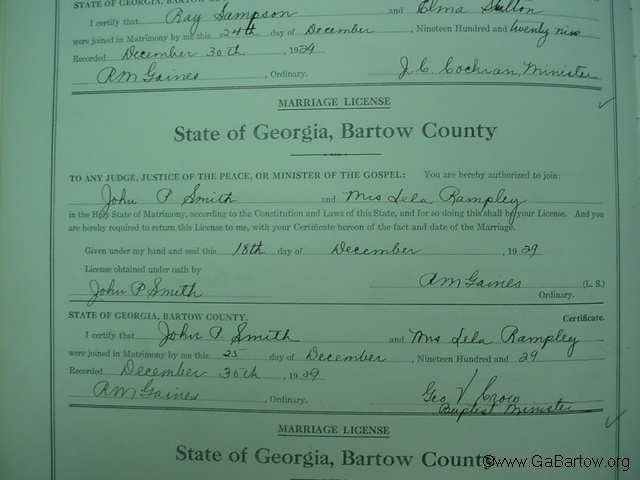 STATE OF GEORGIA, BARTOW
I certify that Ray Sampson and Elma
were joined in Matrimony by me this 24th day of December, Nineteen Hundred and twenty nine
Recorded December 30th, 1929
RM Gaines, Ordinary. J. C. Cochran, Minister
MARRIAGE LICENSE
State of Georgia, Bartow County
TO ANY JUDGE, JUSTICE OF THE PEACE, OR MINISTER OF THE GOSPEL: You are hereby authorized to join:
John P. Smith and Mrs Lela Rampley
in the Holy State of Matrimony, according to the Constitution and Laws of this State, and for so doing this shall be your License. And you
are hereby required to return this License to me, with your Certificate hereon of the fact and date of the Marriage.
Given under my hand and seal this 18th day of December, 1929
License obtained under oath by
John P Smith RM Gaines (L. S.)
Ordinary.
STATE OF GEORGIA, BARTOW COUNTY. Certificate.
I certify that John P Smith and Mrs Lela Rampley
were joined in Matrimony by me this 25 day of December, Nineteen Hundred and 29
Recorded December 30th, 1929
RM Gaines, Ordinary. Geo V Crow
Baptist Minister
MARRIAGE LICENSE
State of Georgia, Bartow County
©www.GaBartow.org